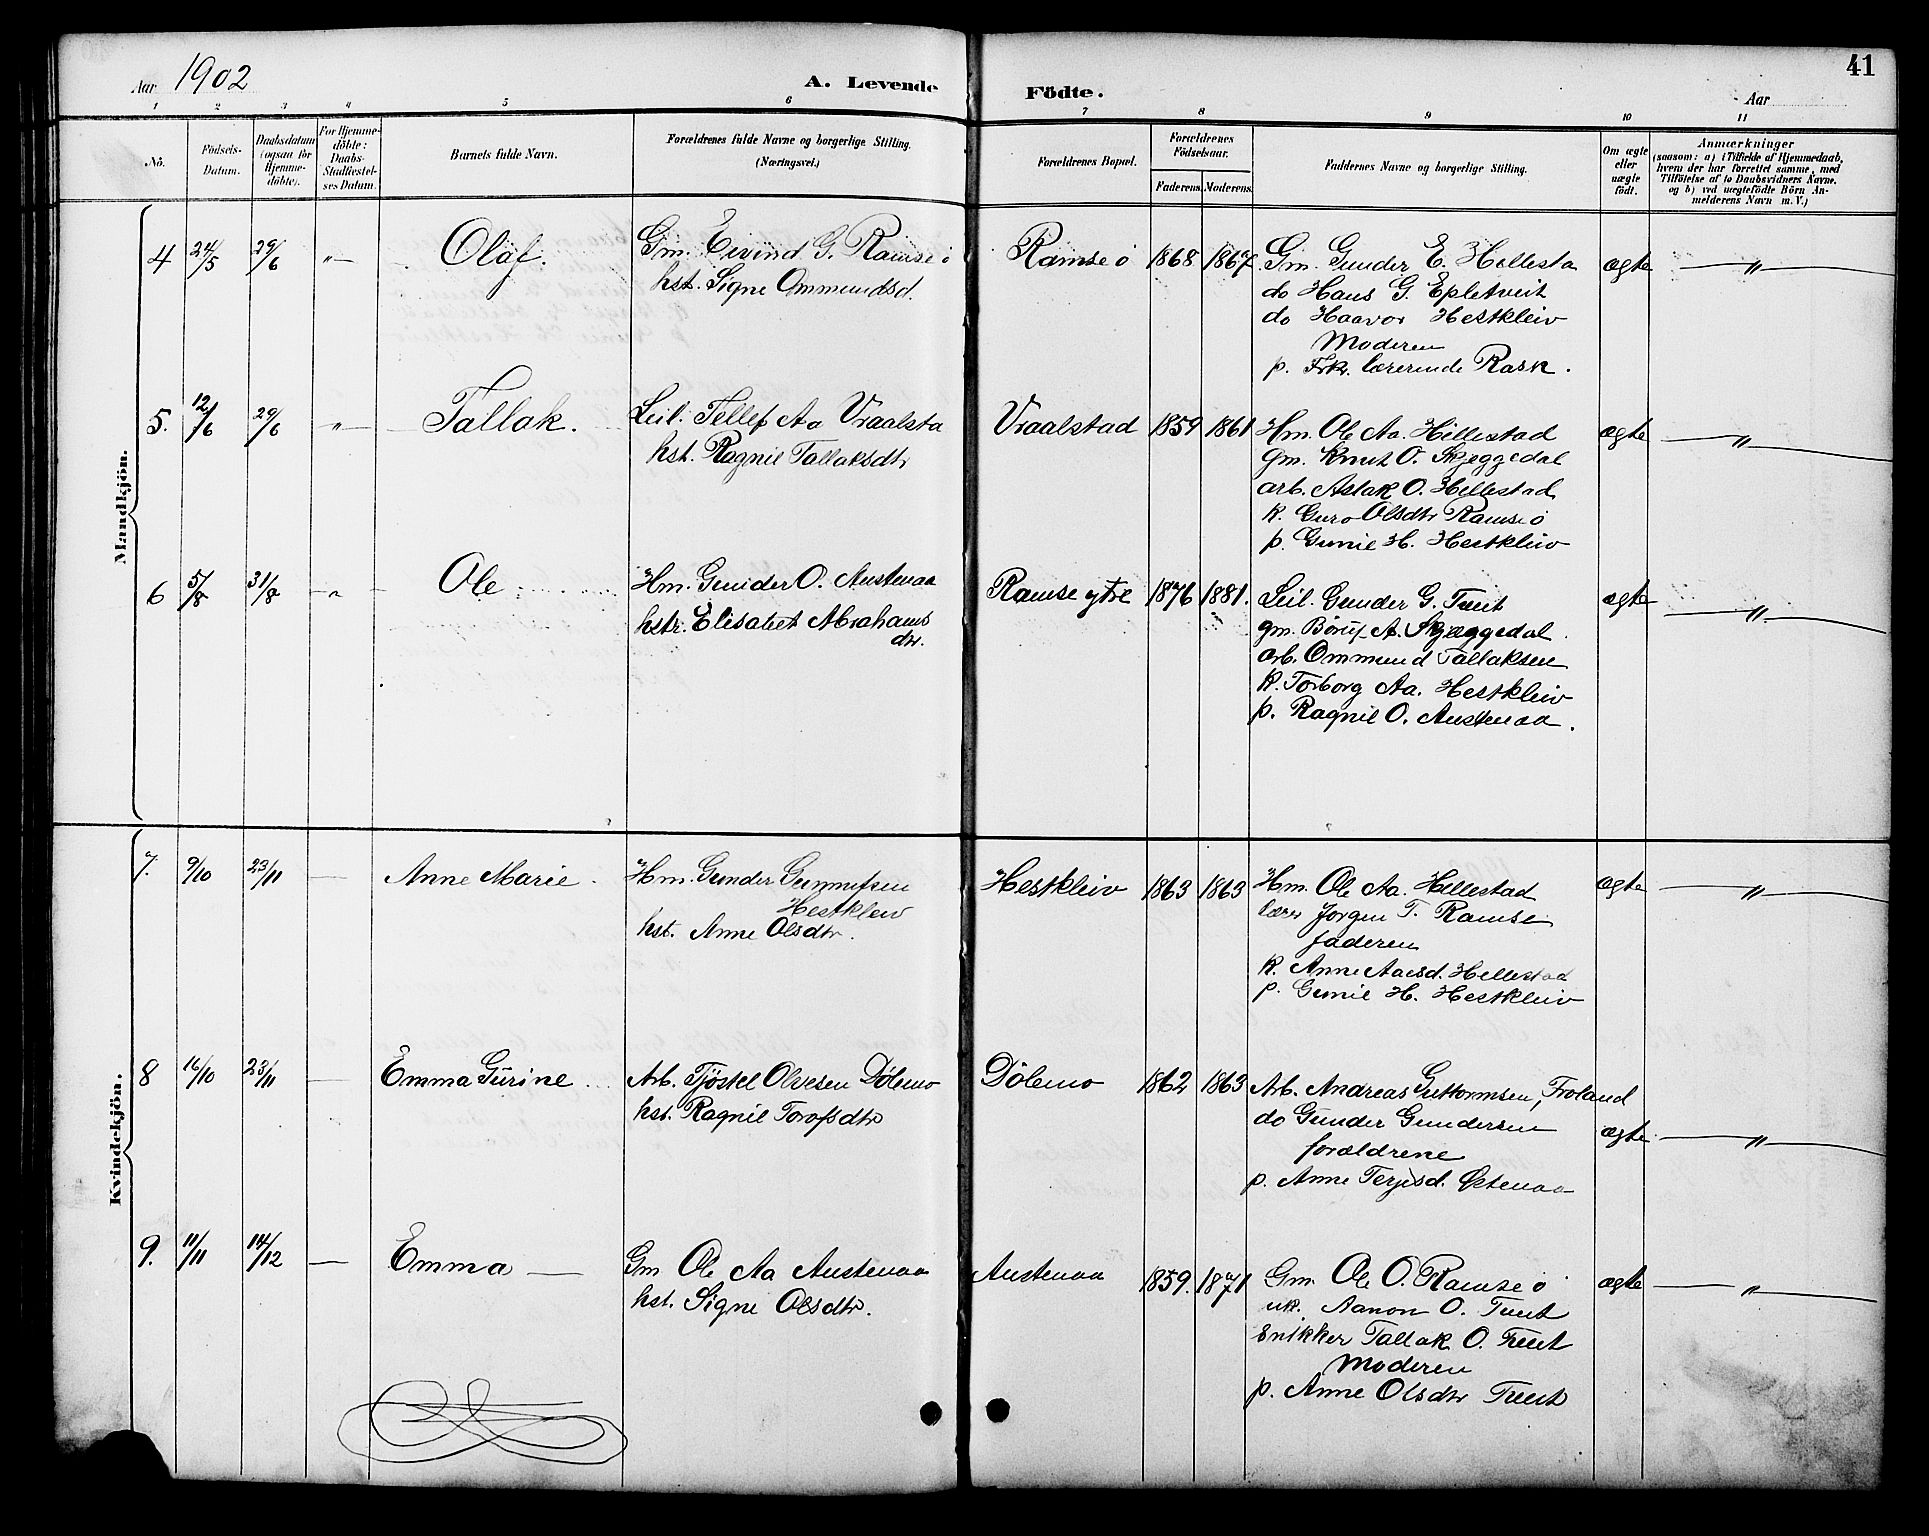 Aar 1902
A. Levende Födte.
Aar
41
1 2 3 4 5 6 7 8 9 10 11
No.
Födsels-Datum.
Daabsdatum (ogsaa for Hjemme-döbte).
For Hjemme-döbte: Daabs-Stadfæstelses Datum.
Barnets fulde Navn.
Forældrenes fulde Navne og borgerlige Stilling. (Næringsvei.)
Forældrenes Bopæl.
Forældrenes Födselsaar.
Faderens. Moderens.
Faddernes Navne og borgerlige Stilling.
Om ægte eller uægte födt.
Anmærkninger
(saasom: a) i Tilfælde af Hjemmedaab, hvem der har forrettet samme, med Tilföielse af to Daabsvidners Navne, og b) ved uægtefödte Börn Anmelderens Navn m. V.)
Mandkjön.
4 24/5 29/6 " Olaf. Gm. Eivind G. Ramse ö Ramse ö 1868 1867 Gm. Gunder E. Hellesta ægte "
hst. Signe Ommundsd. do Hans G. Epletveit
do Haavor Hestkleiv
Moderen
p. Frk. lærerinde Rask.
5. 12/6 29/6 " Tallak. Leil. Tellef Aa Vraalsta Vraalstad 1859 1861 Hm. Ole Aa. Hillestad ægte "
hst. Ragnil Tallaksdtr gm. Knut O. Skjeggedal
arb. Aslak O. Hellestad
k. Guro Olsdtr Ramse ö
p. Gunil H. Hestkleiv
6 5/8 31/8 " Ole Hm. Gunder O. Austenaa Ramse ytre 1876 1881. Leil. Gunder G. Tveit ægte "
hstr. Elisabet Abrahams dtr. gm. Böruf A. Skjæggedal
arb. Ommund Tallaksen
k. Torborg Aa. Hestkleiv
p. Ragnil O. Austenaa.
Kvindekjön.
7. 9/10 23/11 Anne Marie. Hm. Gunder Gunnufsen Hestkleiv Hestkleiv 1863 1863 Hm. Ole Aa. Hellestad ægte "
hst. Anne Olsdtr. lærer Jorgen T. Ramse
faderen
k. Anne Aaesd. Hellestad
p. Gunil H. Hestkleiv
8 16/10 23/11 Emma Gurine Arb. Tjöstel Olvesen Dölemo Dölemo 1862 1863 Arb. Andreas Guttormsen, Froland
hst. Ragnil Torofsdtr do Gunder Gundersen ægte "
forældrene
p. Anne Terjesd. Östenaa
9. 11/11 14/12 Emma Gm Ole Aa Austenaa Austenaa 1859. 1871 Gm. Ole O. Ramse ö ægte "
hst. Signe Olsdtr. uk. Aanon O. Tveit
Snikker Tallak O. Tveit
Moderen
p. Anne Olsdtr Tveit